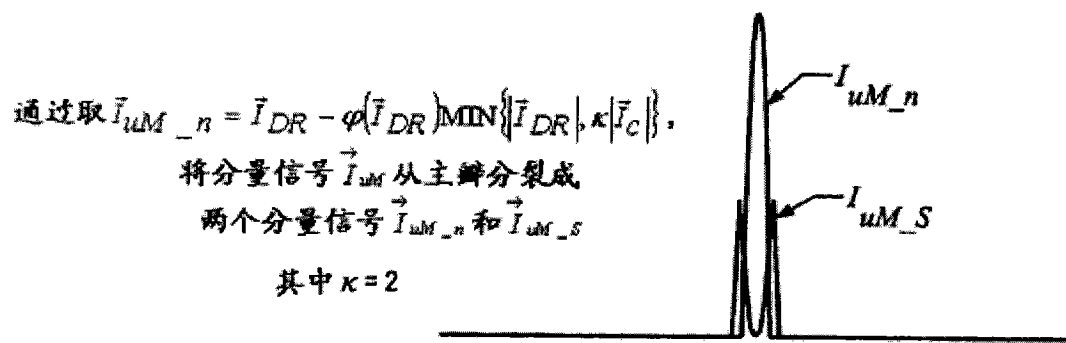 通过取 I⃗_{uM_n} = I⃗_{DR} - φ(I⃗_{DR})MIN{|I⃗_{DR}|, κ|I⃗_c|},
将分量信号 I⃗_{uM} 从主瓣分裂成
两个分量信号 I⃗_{uM_n} 和 I⃗_{uM_S}
其中 κ = 2
I_{uM_n}
I_{uM_S}